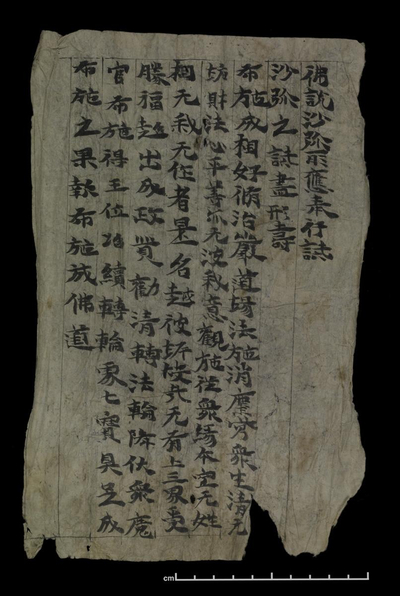 佛說沙弥所應奉行誡
沙弥之誡盡形壽
布施成相好脩治嚴道場法施消塵勞衆生清无
妨財法心平等亦无彼我意觀施從衆緣本空无姓
相无我无住者是名越彼岓 无有上三界最
勝福超出成政覺勸請轉法輪降伏衆魔
官布施得王位 績轉輪家七寶具足成
布施之果報布施成佛道